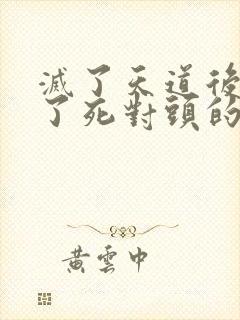 滅了天道後
了死對頭的
黃雲中